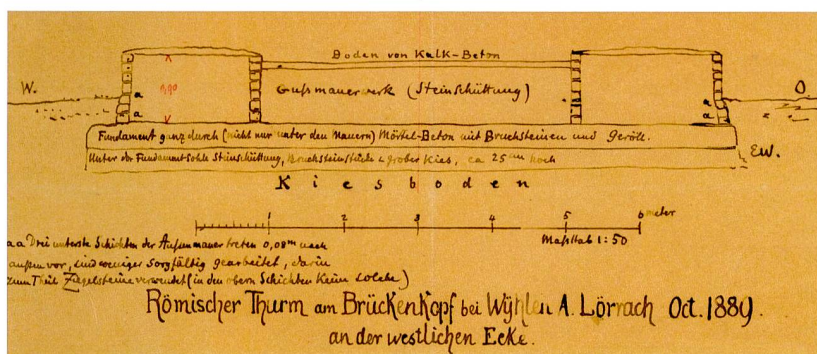 Boden von Kalk-Beton
W.
O.
1,90
Gußmauerwerk (Steinschüttung)
a
a
a
a
Fundament ganz durch (nicht nur unter den Mauern) Mörtel-Beton mit Bruchsteinen und Geröll.
Unter der Fundamentsohle Steinschüttung, Bruchsteinstücke u. grober Kies, ca 25 cm hoch
EW.
Kiesboden
1 2 3 4 5 6 meter
Maßstab 1:50
aa Drei unterste Schichten der Außenmauer treten 0,08m nach
außen vor, sind weniger sorgfältig gearbeitet, darin
zum Theil Ziegelsteine verwendet (in den obern Schichten keine solche)
Römischer Thurm am Brückenkopf bei Wyhlen A. Lörrach Oct. 1889.
an der westlichen Ecke.